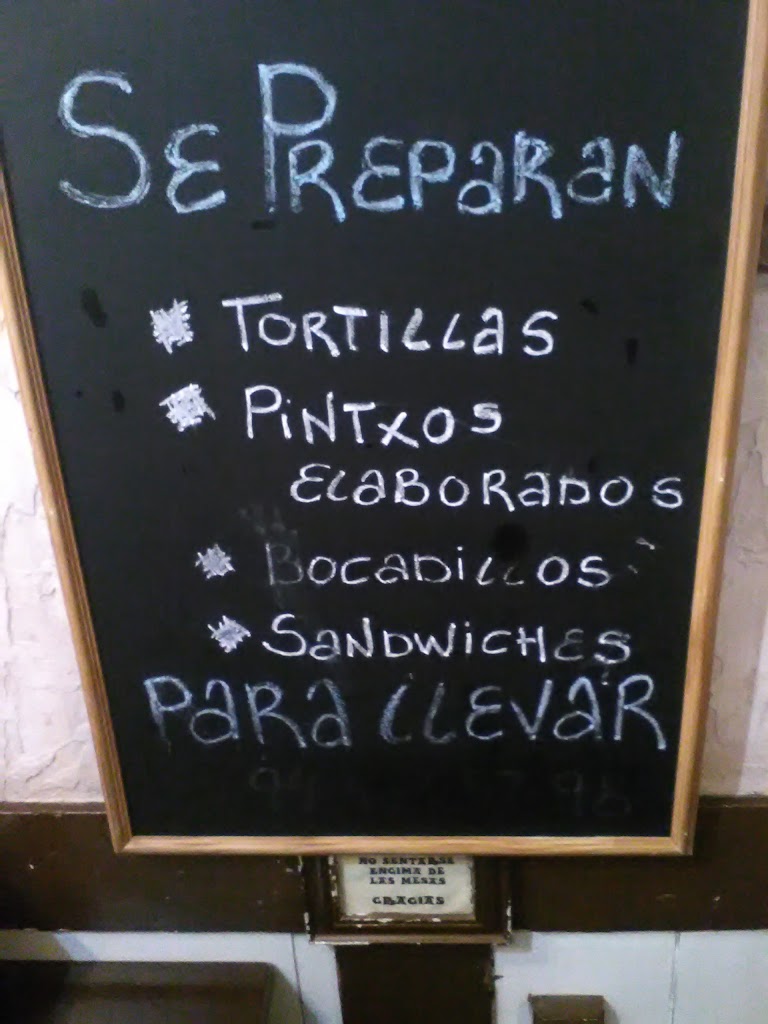 Se PREPaRaN
TORTILLaS
PiNTXOS
ELaBORaDOS
BOCaDiLLOS
SaNDWiCHES
PaRa LLEVaR
NO SENTARSE
ENCIMA DE
LAS MESAS
GRACIAS